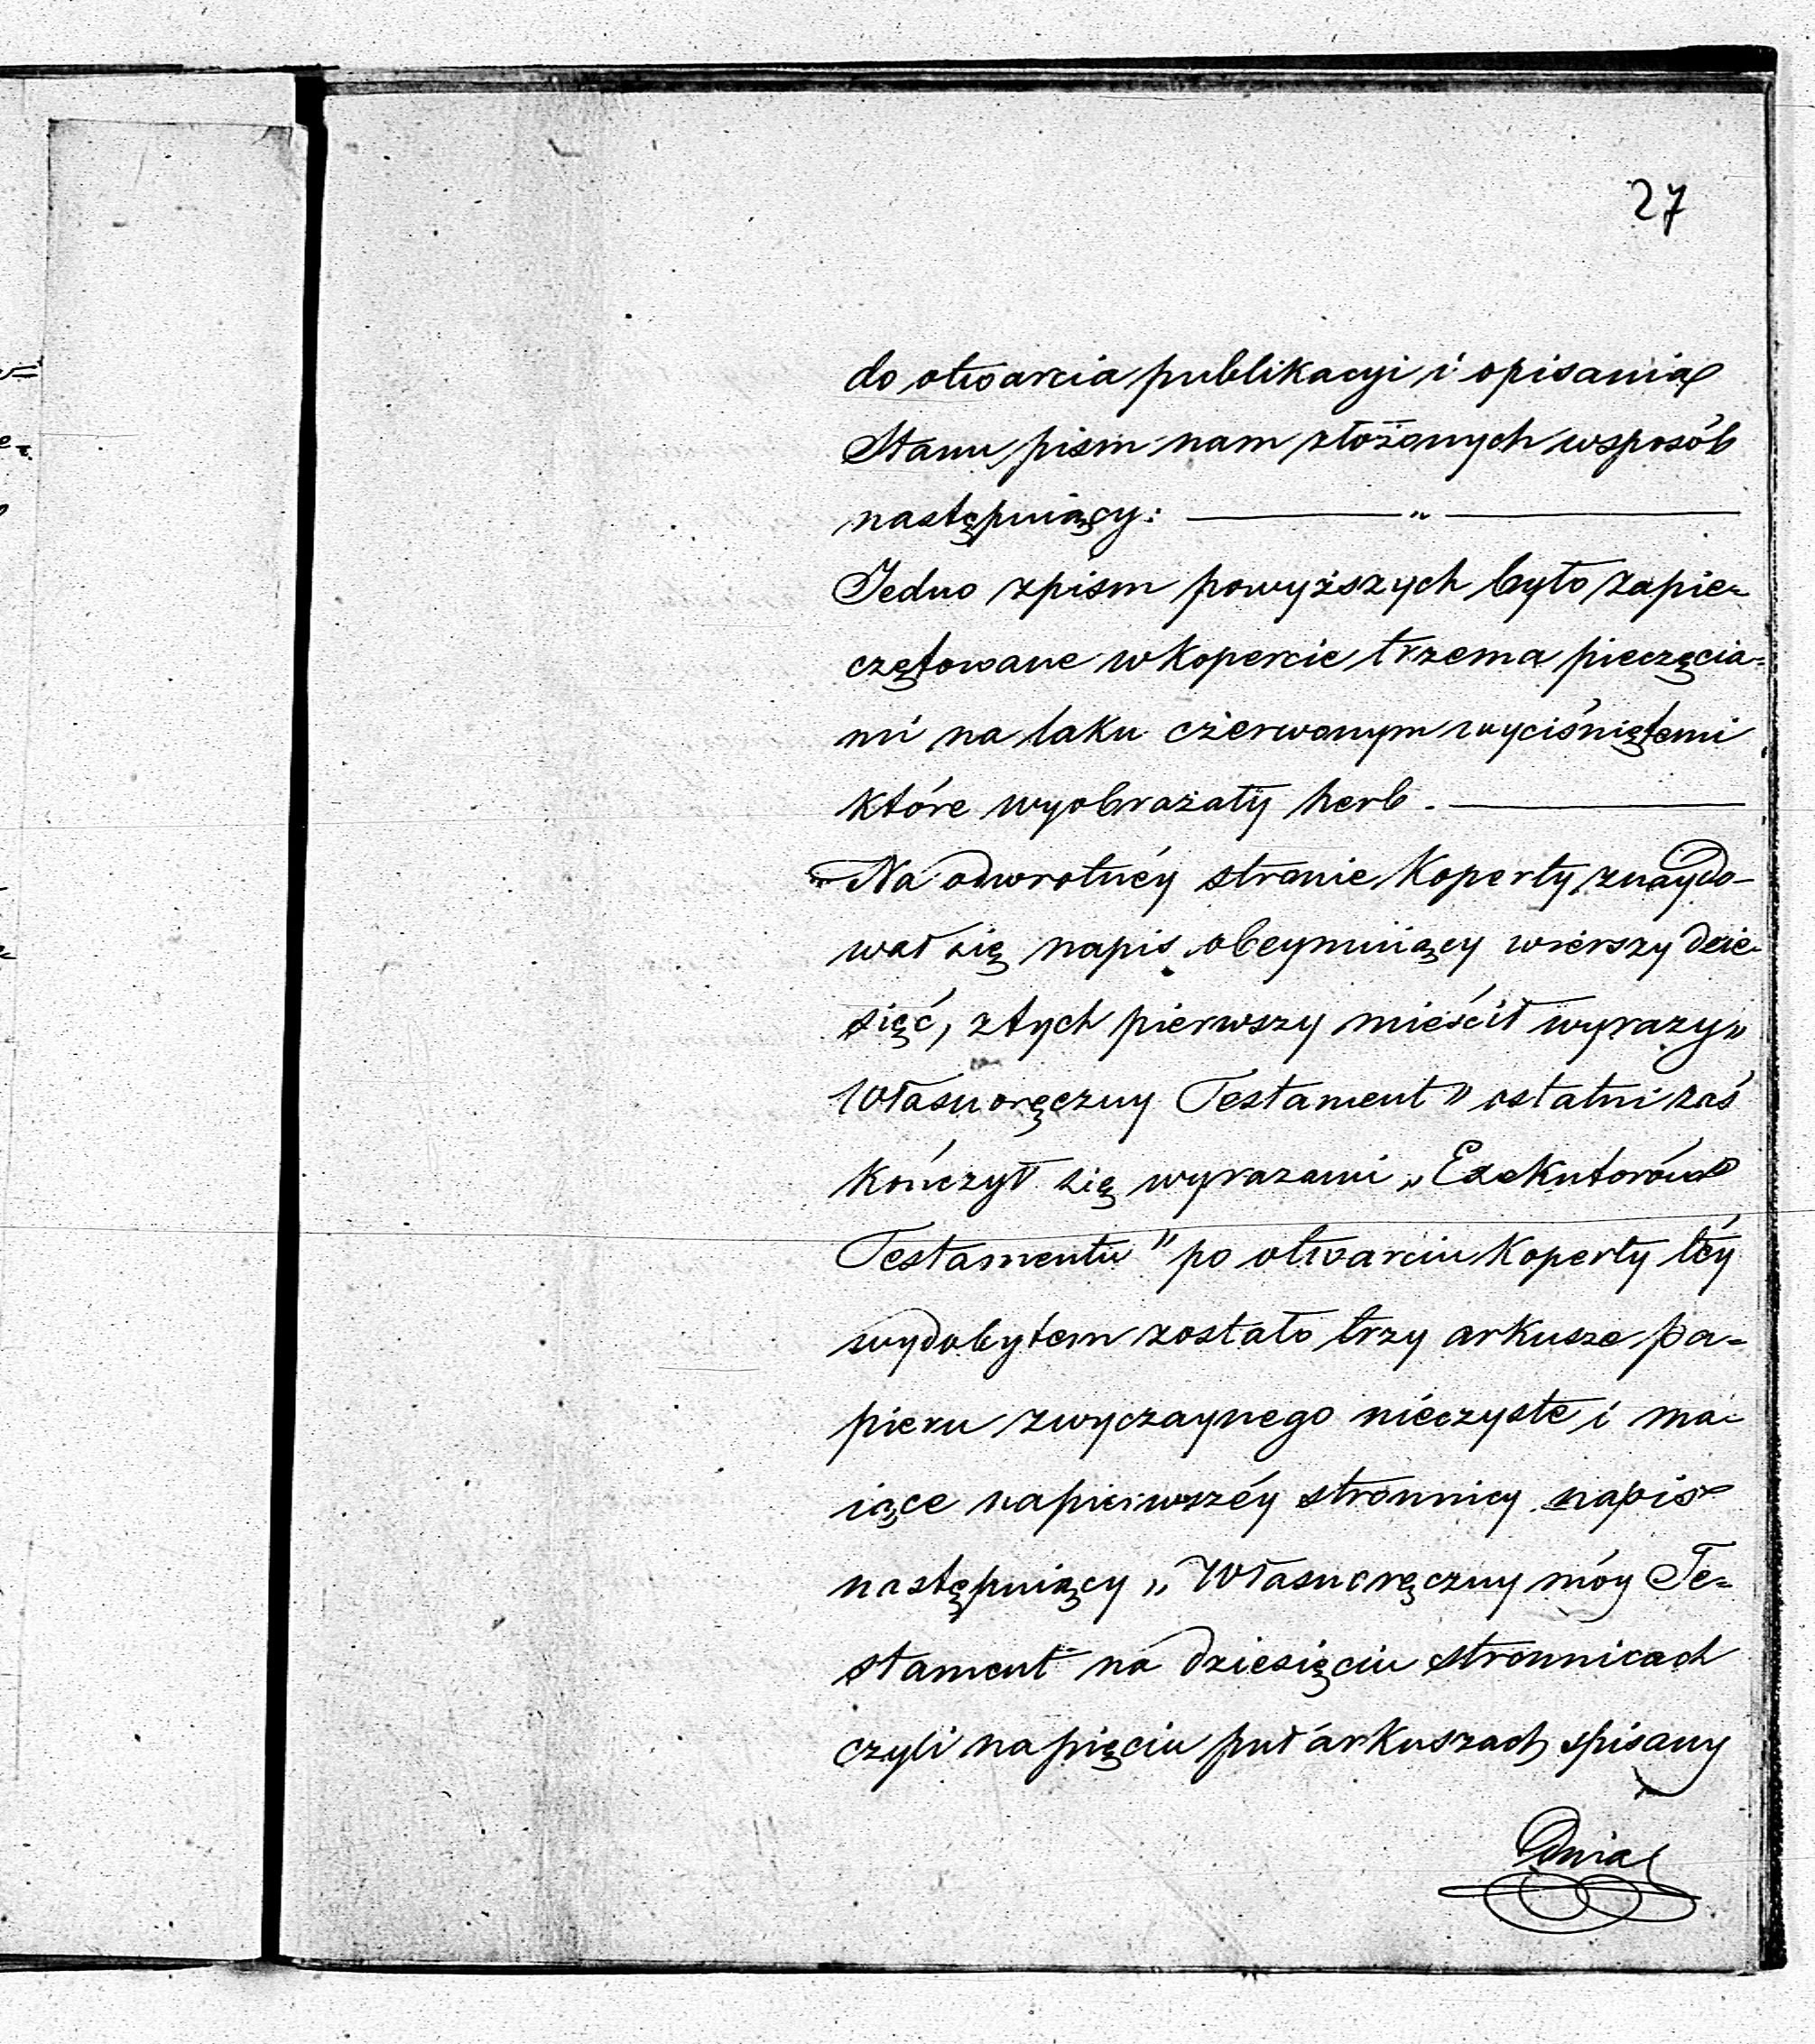 27
do otwarcia publikacyi i opisania
Stanu pism nam złożonych wsposób
następuiący: — „ —
Jedno zpism powyższych było zapie-
czętowane wkopercie trzema pieczęcia-
mi na laku czerwonym wyciśniętemi
które wyobrażały herb. —
Na odwrotnéy stronie koperty znaydo-
wał się napis obeymuiący wierszy dzie-
sięć, ztych pierwszy mieścił wyrazy „
Własnoręczny Testament” ostatni zaś
kończył się wyrazami „Exekutorów
Testamentu” po otwarciu koperty téy
wydobytem zostało trzy arkusze pa-
pieru zwyczaynego nieczyste i ma-
iące napierwszéy stronnicy napis
następuiący „Własnoręczny móy Te-
stament na dziesięciu stronnicach
czyli na pięciu puł arkuszach spisany
Dnia